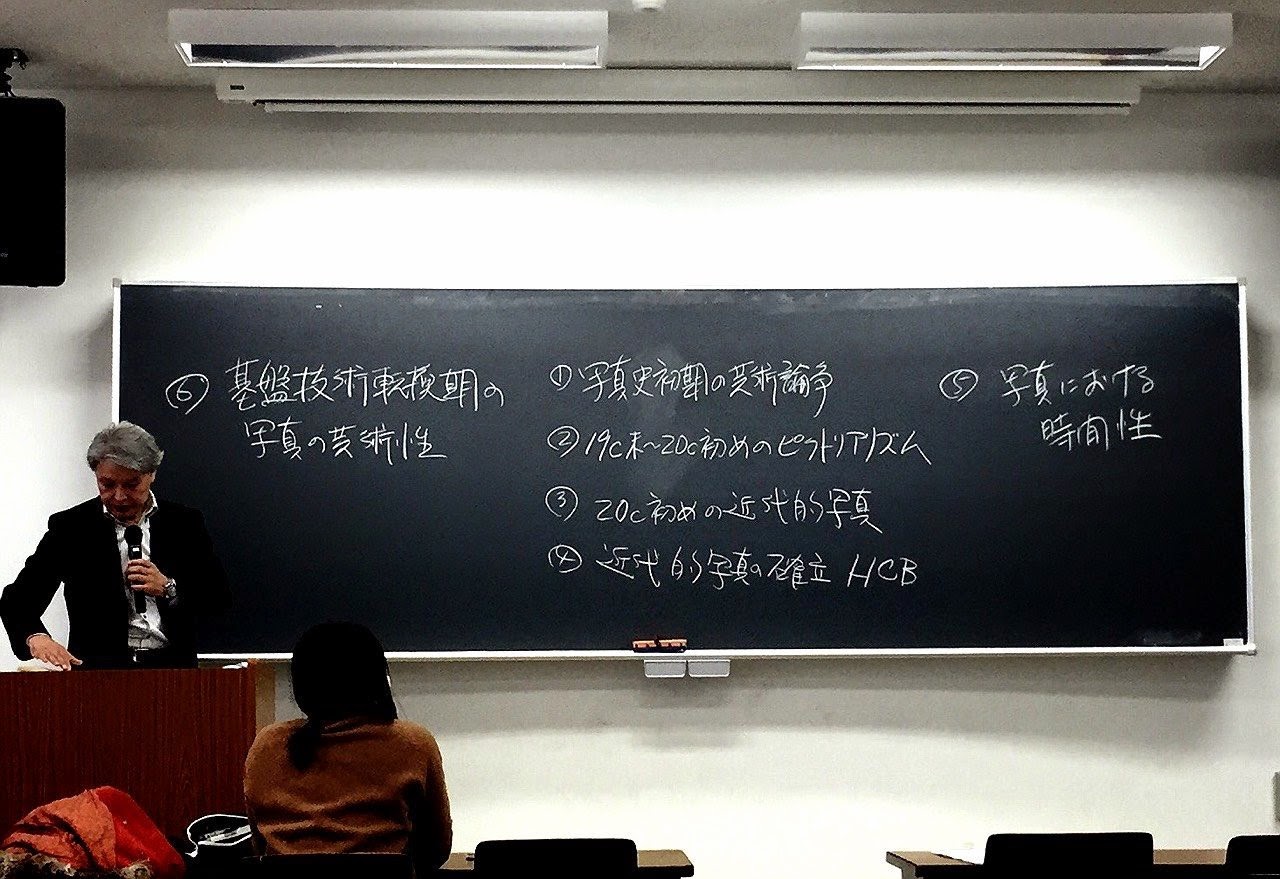 ⑥ 基盤技術転換期の
写真の芸術性
① 写真史初期の芸術論争
② 19c末~20c初めのピクトリアリズム
③ 20c初めの近代的写真
④ 近代的写真の確立 HCB
⑤ 写真における
時間性